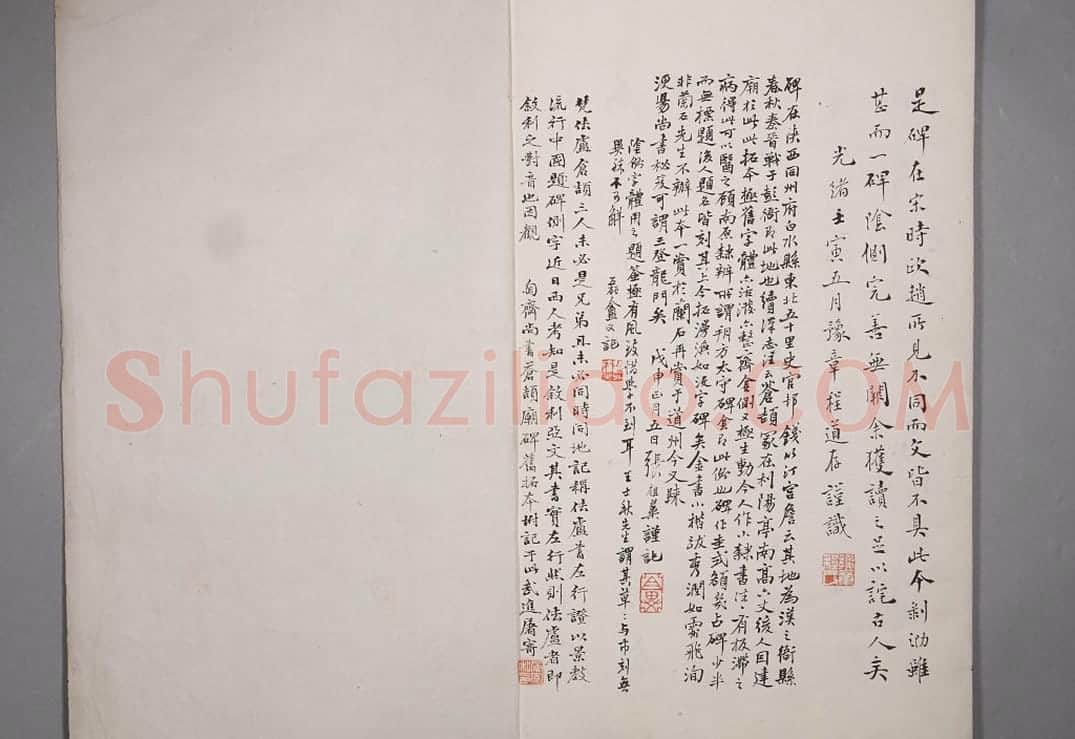 是碑在宋時歐趙所見不同而文皆不具此本剝泐雖
甚而一碑陰側完善無闕余獲讀之足以詫古人矣
光緒壬寅五月豫章程道存謹識
碑在陝西同州府白水縣東北五十里史官村錢少汀宮詹云其地為漢之衙縣
春秋秦晉戰于彭衙即此地也續漢志注云蒼頡冢在利陽亭南高六丈後人因建
廟於此此拓本極舊字體亦活潑亦整齊全側又極生動今人作小隸書注有板滯之
病得此可以醫之顧南原隸辨所謂朔方太守碑倉即此份也碑作圭式額幾占碑少半
而無標題後人題名皆刻其上今拓漫漶如沒字碑矣金書小楷詠秀潤如霏飛洵
非蘭石先生不辦此本一賞於蘭石再賞于道州今又隸
浭陽尚書秘笈可謂三登龍門矣 戊申正月五日張祖翼謹記
陰側字體用之題簽極有風致惜與不到耳 王士秋先生謂其草草與市刻無
異殊不可解 磊盦又記
梵佉盧倉頡三人未必是兄弟且未必同時同地記稱佉盧書左行證以景教
流行中國題碑側字近日西人考知是敘利亞文其書實左行然則佉盧者即
敘利之對音也因觀 匋齋尚書蒼頡廟碑舊拓本附記于此武進屠寄
Shufaziliao.COM